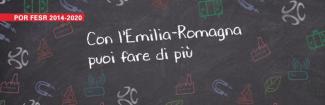 POR FESR 2014-2020
Con l'Emilia-Romagna
puoi fare di più